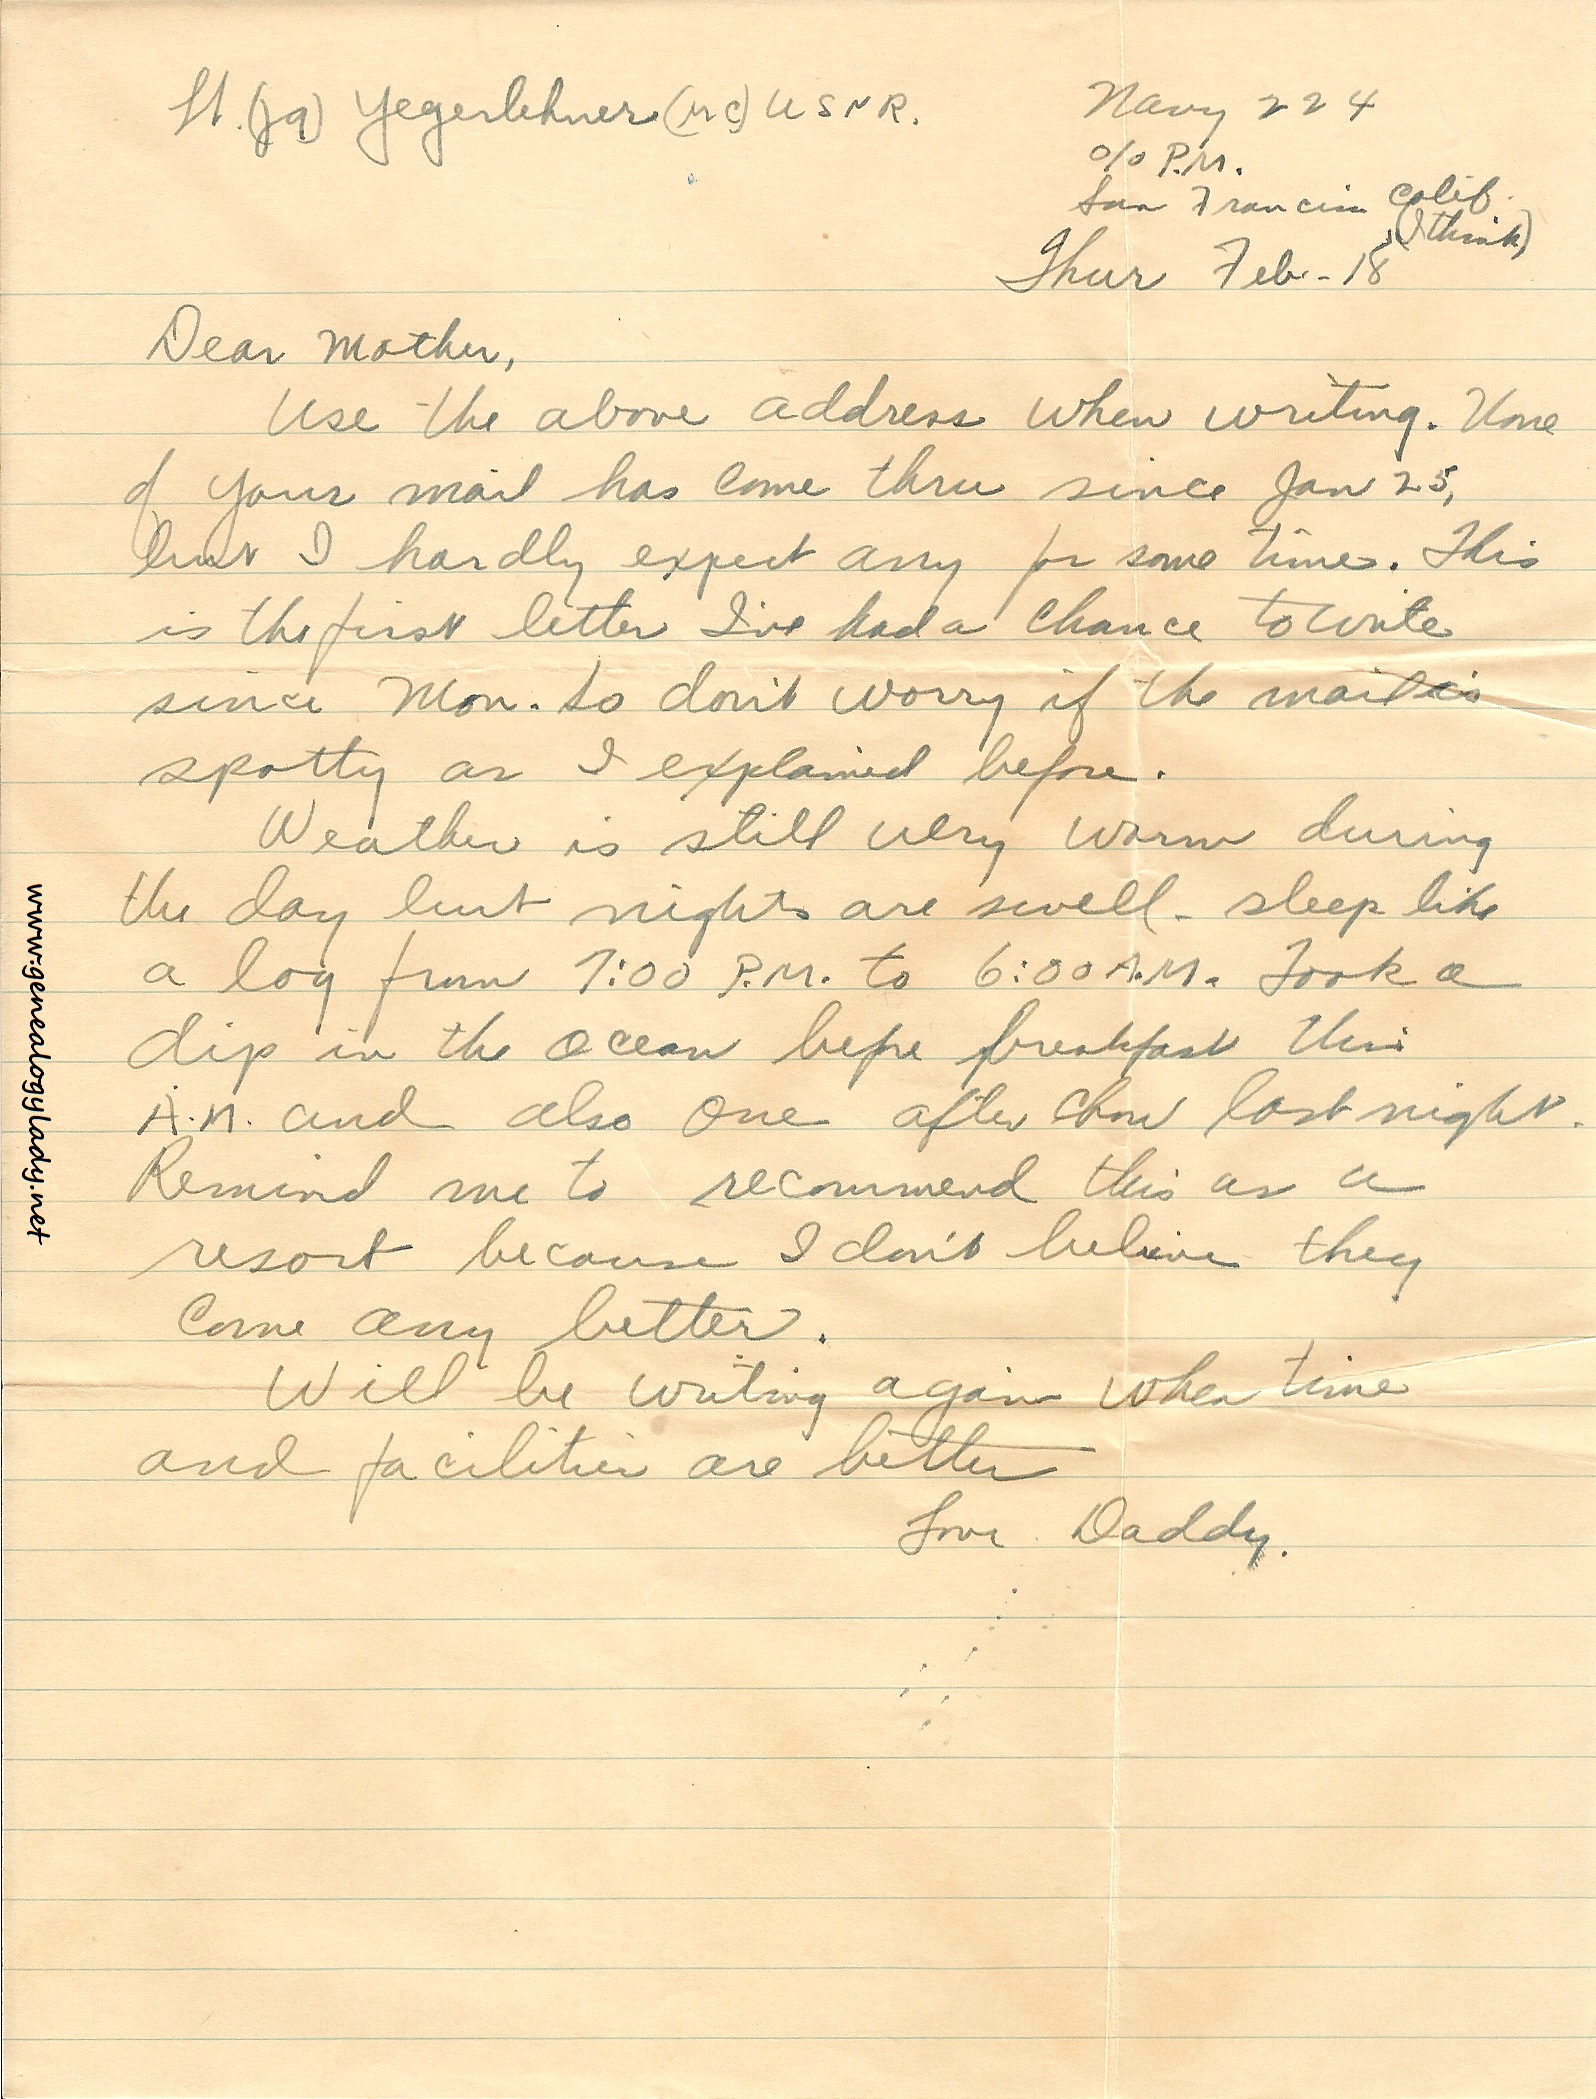 Lt. (jg) Yegerlehner (MC) USNR.
Navy 224
o/o P.M.
San Francisco Calif.
(I think)
Thur Feb-18
Dear Mother,
Use the above address when writing. None
of your mail has come thru since Jan 25,
but I hardly expect any for some time. This
is the first letter I've had a chance to write
since Mon. So don't worry if the mail is
spotty as I explained before.
Weather is still very warm during
the day but nights are swell - sleep like
a log from 7:00 P.M. to 6:00 A.M. Took a
dip in the ocean before breakfast this
A.M. and also one after chow last night.
Remind me to recommend this as a
resort because I don't believe they
come any better.
Will be writing again when time
and facilities are better
Love Daddy.
www.genealogylady.net